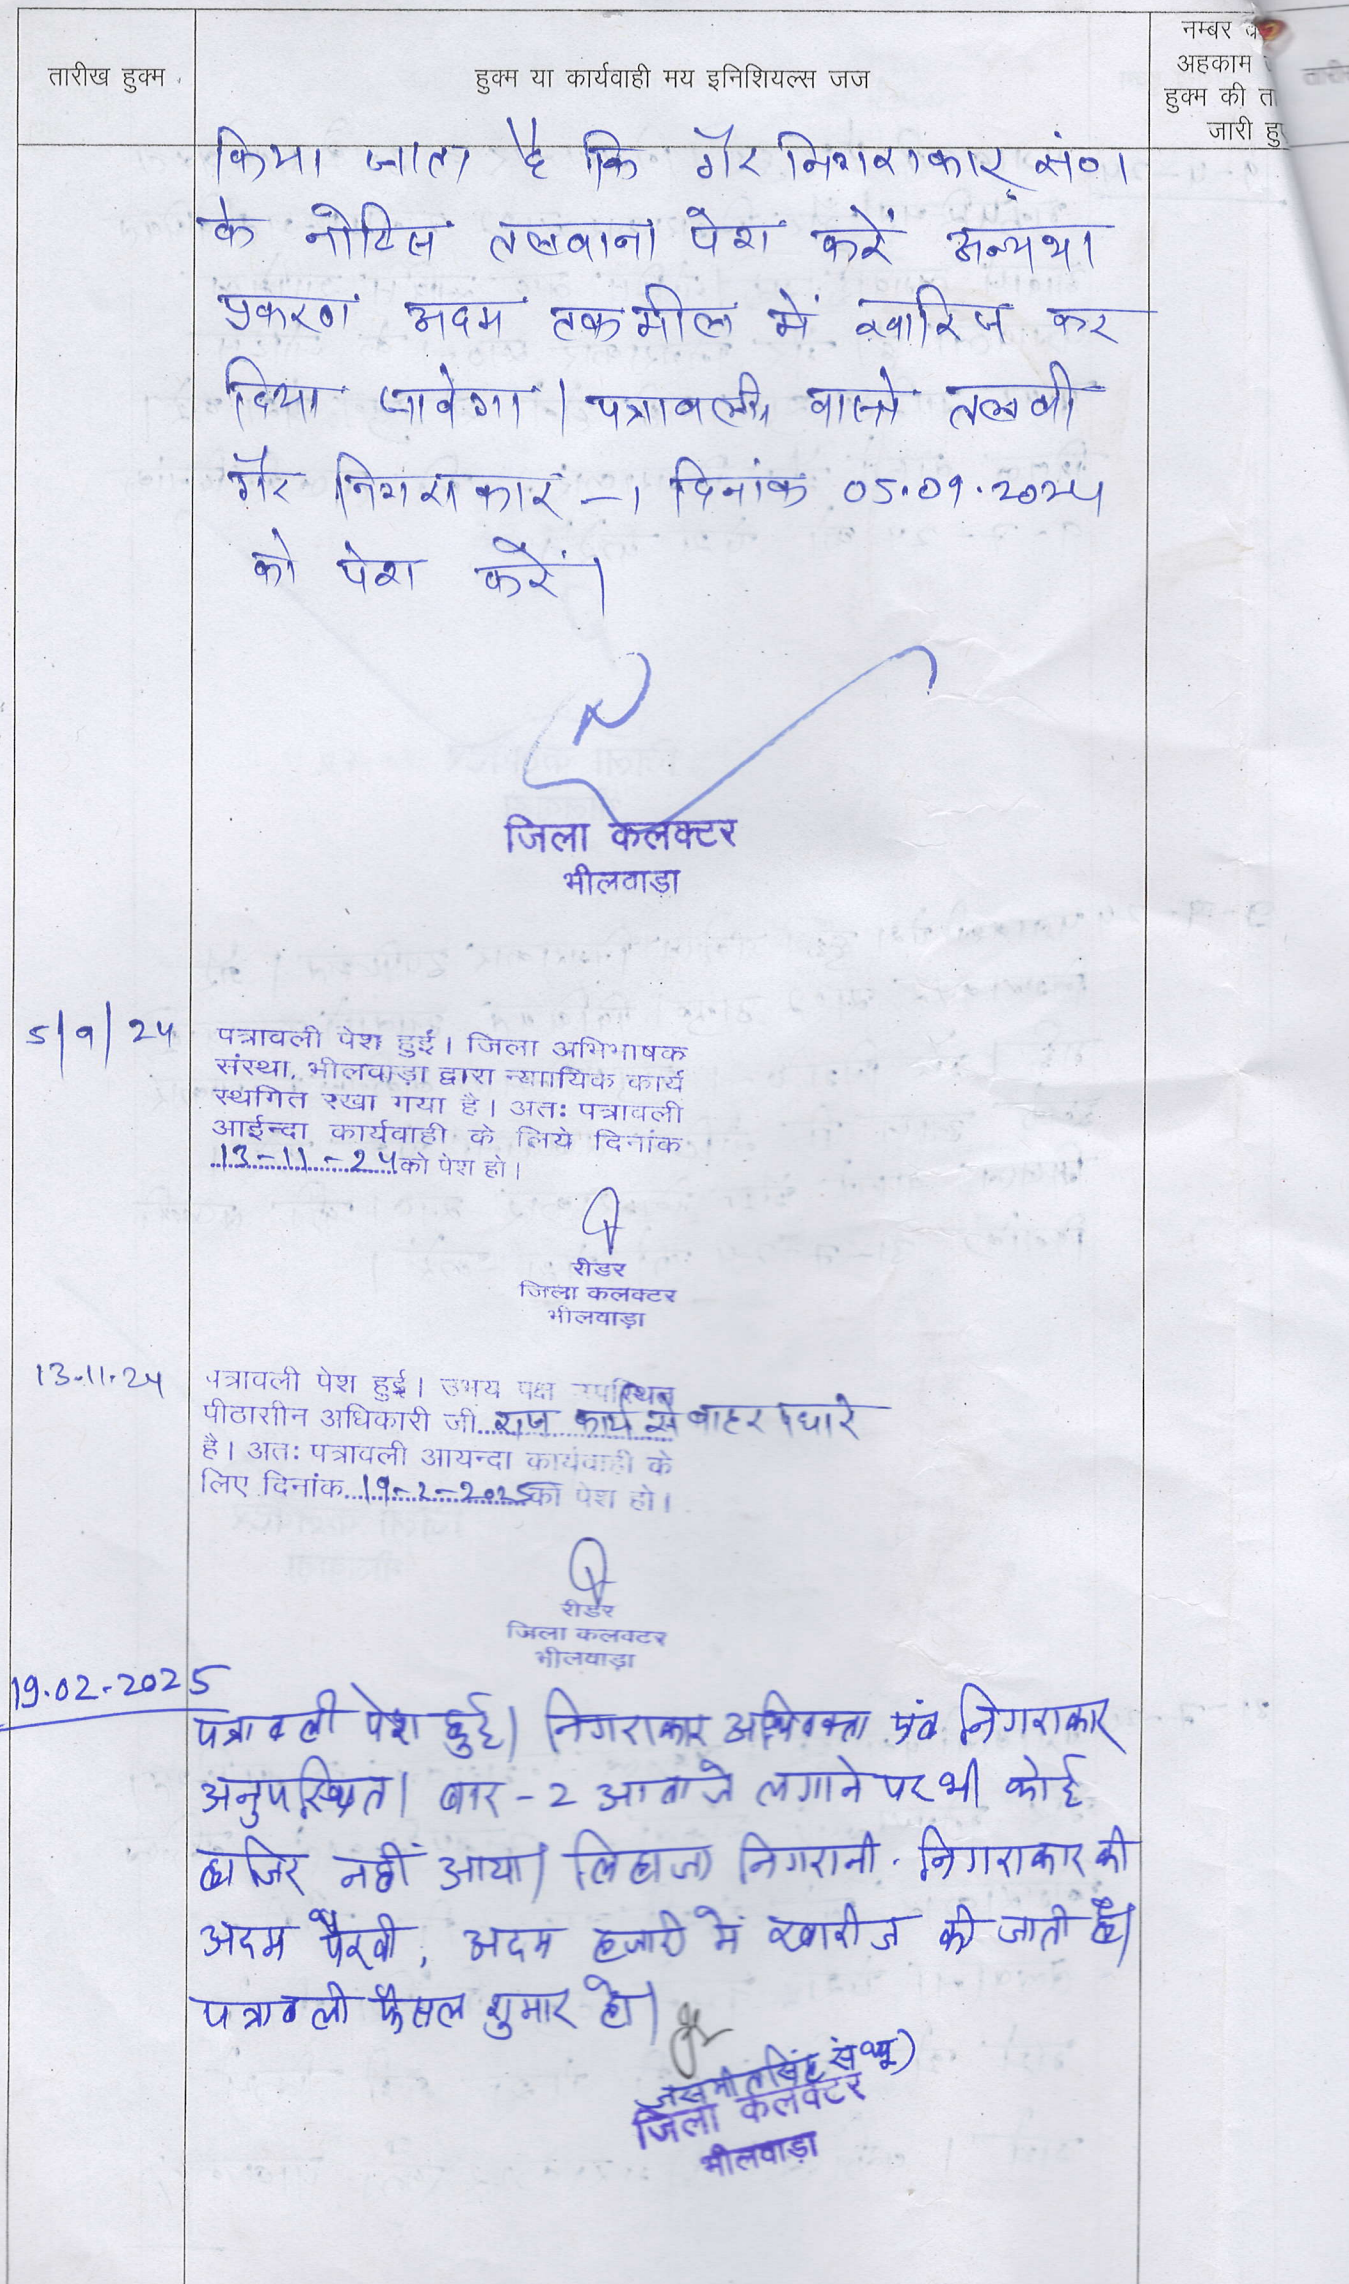 तारीख हुक्म
हुक्म या कार्यवाही मय इनिशियल्स जज
नम्बर
अहकाम
हुक्म की ता
जारी हु
किया जाता है कि गैर निगराकार सं०1
के नोटिस तलबाना पेश करें अन्यथा
प्रकरण अदम तकमील में खारिज कर
दिया जावेगा। पत्रावली वास्ते तलबी
गैर निगराकार -1 दिनांक 05.09.2024
को पेश करें।
जिला कलक्टर
भीलवाड़ा
5/9/24
पत्रावली पेश हुई। जिला अभिभाषक
संस्था, भीलवाड़ा द्वारा न्यायिक कार्य
स्थगित रखा गया है। अतः पत्रावली
आईन्दा कार्यवाही के लिये दिनांक
13-11-24 को पेश हो।
रीडर
जिला कलक्टर
भीलवाड़ा
13.11.24
पत्रावली पेश हुई। उभय पक्ष उपस्थित
पीठासीन अधिकारी जी राज कार्य से बाहर पधारे
है। अतः पत्रावली आयन्दा कार्यवाही के
लिए दिनांक 19-2-2025 को पेश हो।
रीडर
जिला कलक्टर
भीलवाड़ा
19.02.2025
पत्रावली पेश हुई। निगराकार अधिवक्ता एवं निगराकार
अनुपस्थित। बार-2 आवाजे लगाने पर भी कोई
हाजिर नहीं आया। लिहाजा निगरानी निगराकार की
अदम पैरवी, अदम हाजरी में खारीज की जाती है।
पत्रावली फैसल शुमार हो।
जसमीतसिंह संधू)
जिला कलक्टर
भीलवाड़ा